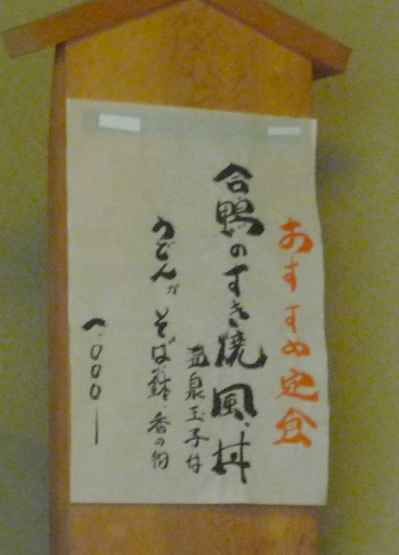 おすすめ定食
合鴨のすき焼風丼
温泉玉子付
うどんかそば鉢 香の物
一、〇〇〇ー